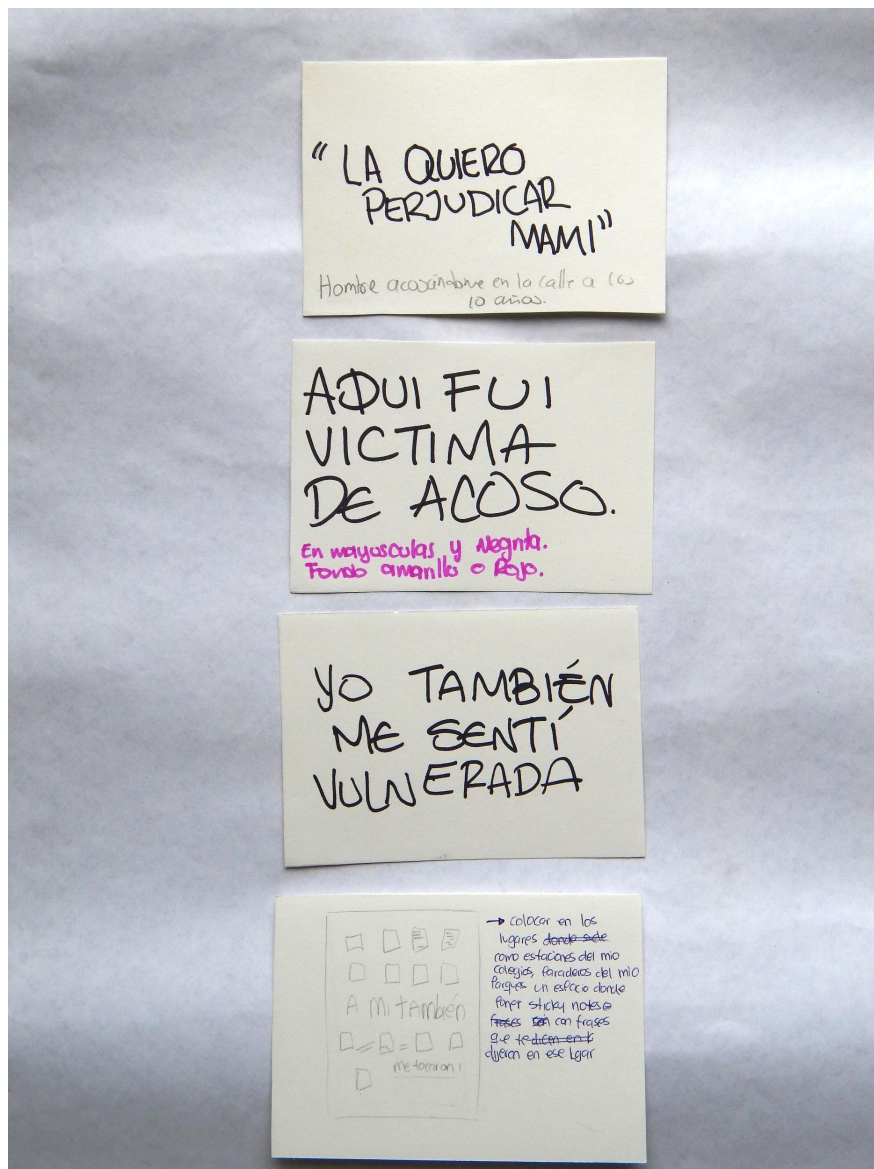 " LA QUIERO
PERJUDICAR
MAMI"
Hombre acosándome en la calle a los
10 años.
AQUI FUI
VICTIMA
DE ACOSO.
En mayusculas y Negrita.
Fondo amarillo o Rojo.
YO TAMBIÉN
ME SENTÍ
VULNERADA
A mi también
me tocaron!
→ colocar en los
lugares donde sude
como estaciones del mio
colegios, paraderos del mio
Parques un espacio donde
Poner sticky notes
frases con frases
que te dicen en
dijeron en ese lugar